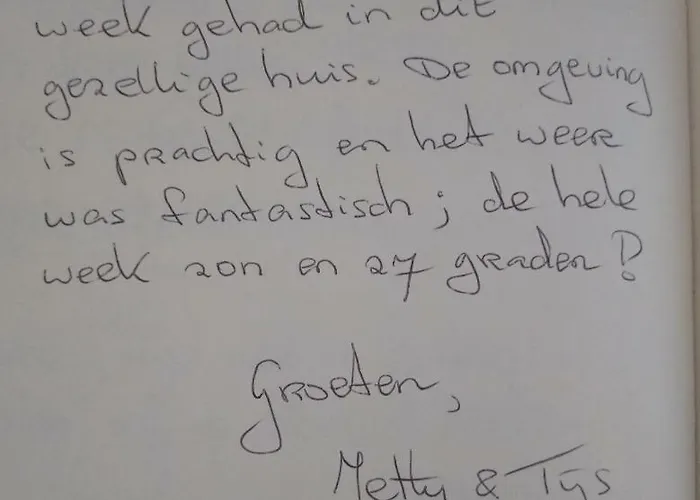 week gehad in dit
gezellige huis. De omgeving
is prachtig en het weer
was fantastisch; de hele
week zon en 27 graden!
Groeten,
Metty & Tijs